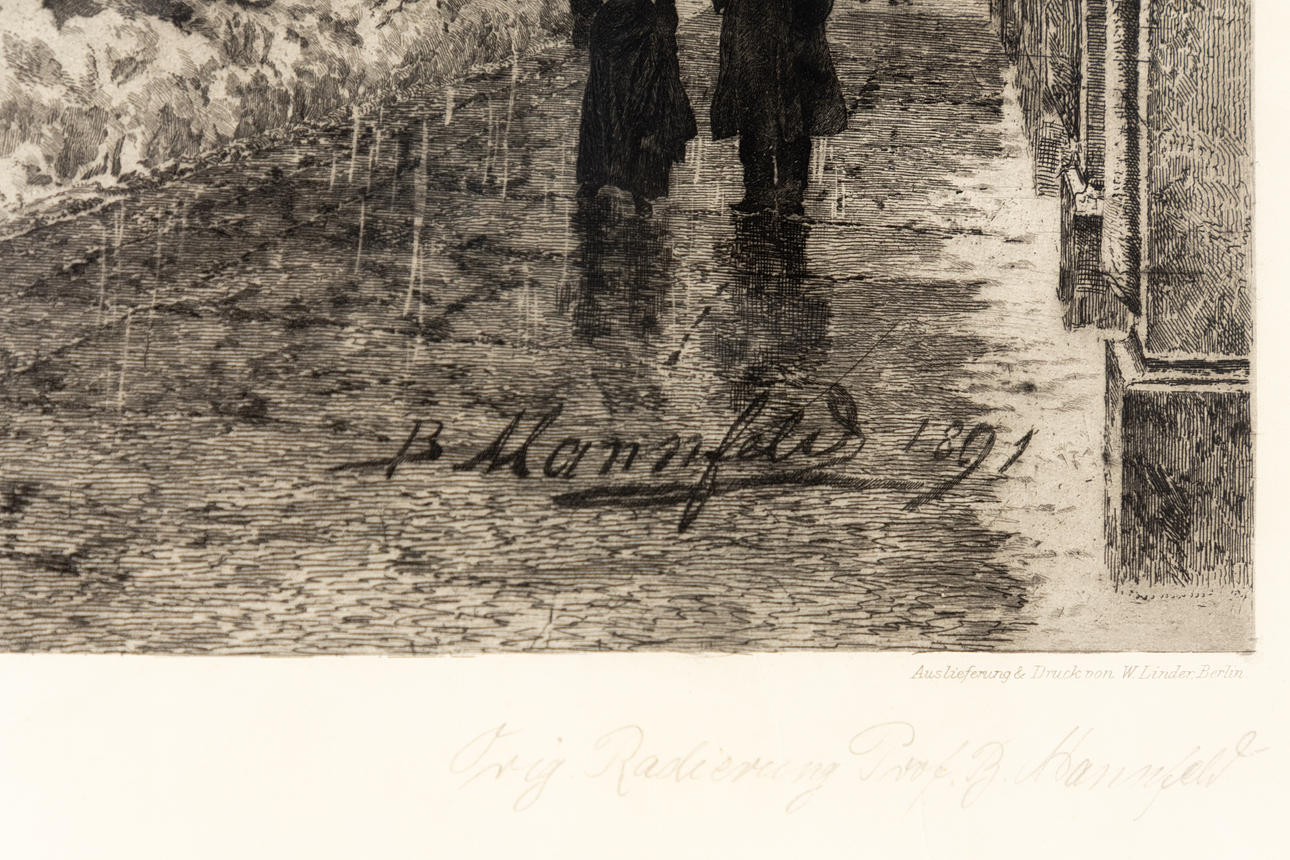 B Mannfeld 1891
Auslieferung & Druck von W. Linder, Berlin
Orig. Radierung Prof. B. Mannfeld